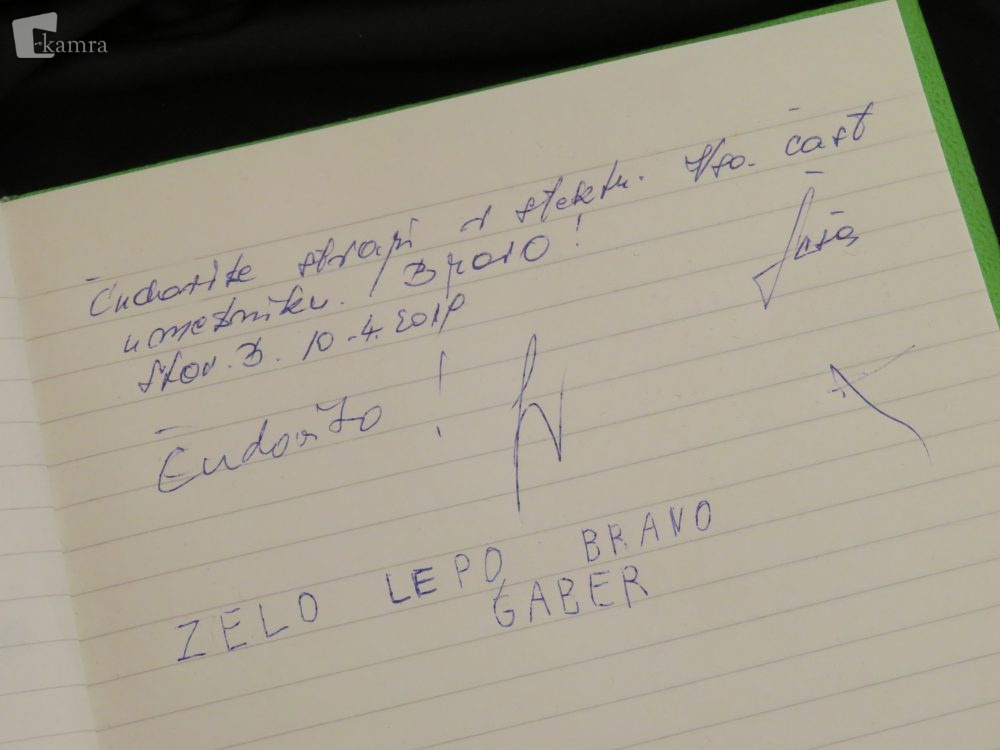 kamra
Čudovite stvari v steklu. Vsa čast
umetniku. Bravo!
10.4.2019
Čudovito!
ZELO LEPO BRAVO
GABER